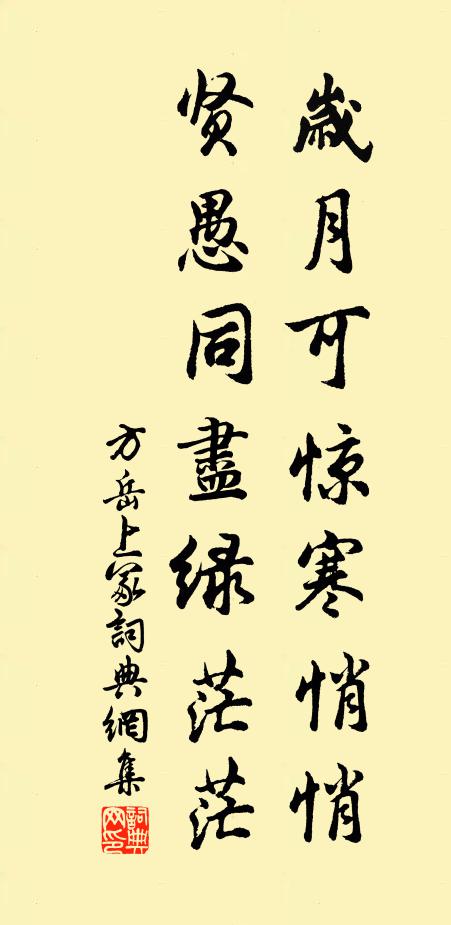 歲月可惊寒悄悄
贤愚同盡绿茫茫
方岳上冢詞典網集
詞典网印